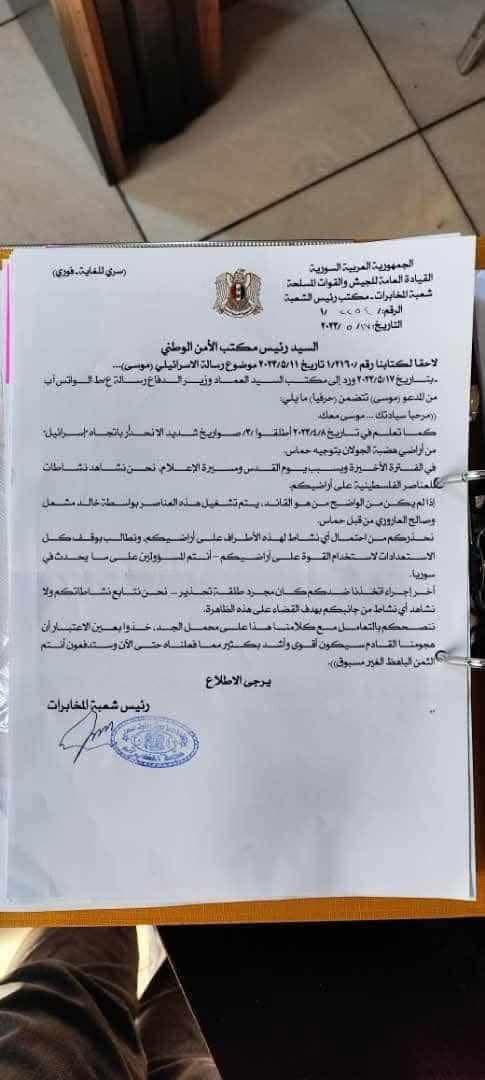 الجمهورية العربية السورية
القيادة العامة للجيش والقوات المسلحة
شعبة المخابرات - مكتب رئيس الشعبة
الرقم: / /١
التاريخ: ١٧/ ٥ /٢٠٢٣
(سري للغاية - فوري)
السيد رئيس مكتب الأمن الوطني
لاحقا لكتابنا رقم /١/٢١٦٠ تاريخ ٢٠٢٣/٥/١١ موضوع رسالة الاسرائيلي (موسى)...
- بتاريخ ٢٠٢٣/٥/١٧ ورد إلى مكتب السيد العماد وزير الدفاع رسالة ع/ط الواتس آب
من المدعو (موسى) تتضمن (حرفيا) ما يلي:
((مرحبا سيادتك ... موسى معك.
كما تعلم في تاريخ ٢٠٢٣/٤/٨ أطلقوا /٣/ صواريخ شديد الانحدار باتجاه "إسرائيل"
من أراضي هضبة الجولان بتوجيه حماس.
في الفترة الأخيرة وبسبب يوم القدس ومسيرة الإعلام، نحن نشاهد نشاطات
للعناصر الفلسطينية على أراضيكم.
إذا لم يكن من الواضح من هو القائد، يتم تشغيل هذه العناصر بواسطة خالد مشعل
وصالح العاروري من قبل حماس.
نحذركم من احتمال أي نشاط لهذه الأطراف على أراضيكم، ونطالب بوقف كل
الاستعدادات لاستخدام القوة على أراضيكم - أنتم المسؤولين على ما يحدث في
سوريا.
آخر إجراء اتخذنا ضدكم كان مجرد طلقة تحذير ... نحن نتابع نشاطاتكم ولا
نشاهد أي نشاط من جانبكم بهدف القضاء على هذه الظاهرة.
ننصحكم بالتعامل مع كلامنا هذا على محمل الجد، خذوا بعين الاعتبار أن
هجومنا القادم سيكون أقوى وأشد بكثير مما فعلناه حتى الآن وستدفعون أنتم
الثمن الباهظ الغير مسبوق)).
يرجى الاطلاع
رئيس شعبة المخابرات